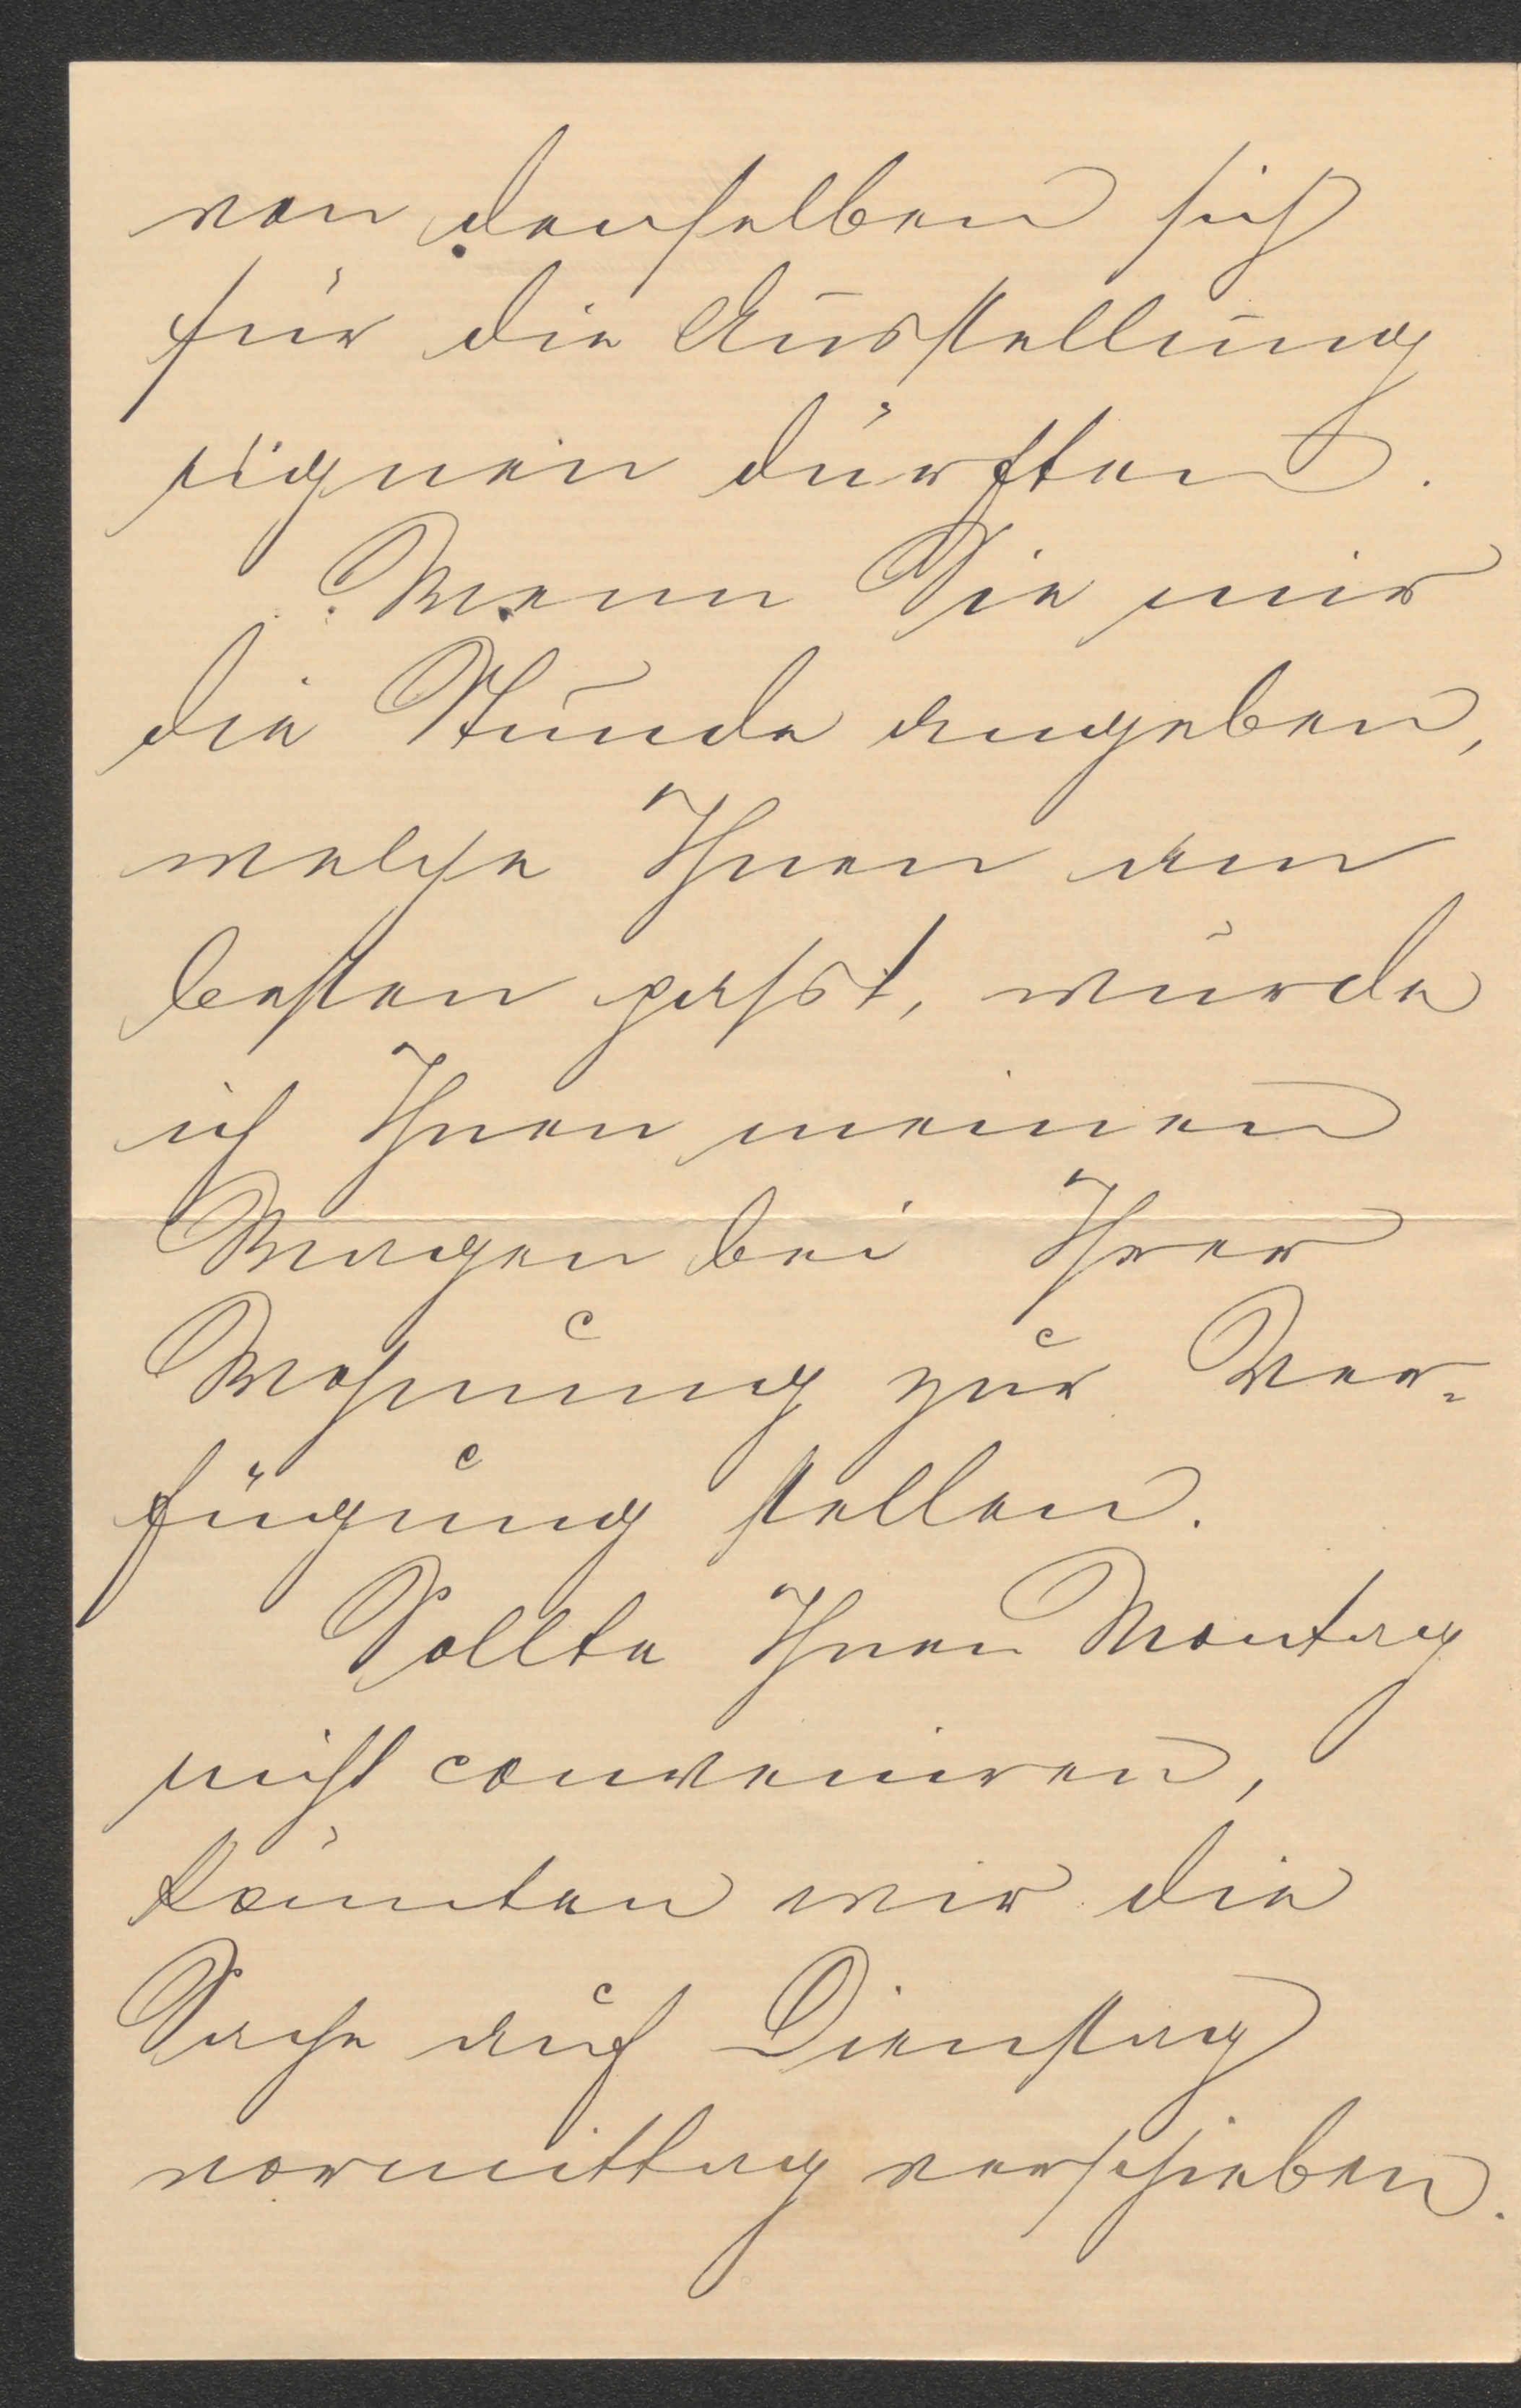 von denselben sich
für die Ausstellung
eignen dürften.
Wenn Sie mir
die Stunde angeben,
welche Ihnen am
besten passt, würde
ich Ihnen meinen
Wagen bei Ihrer
Wohnung zur Ver-
fügung stellen.
Sollte Ihnen Montag
nicht conveniren,
könnten wir die
Sache auf Dienstag
vormittag verschieben.